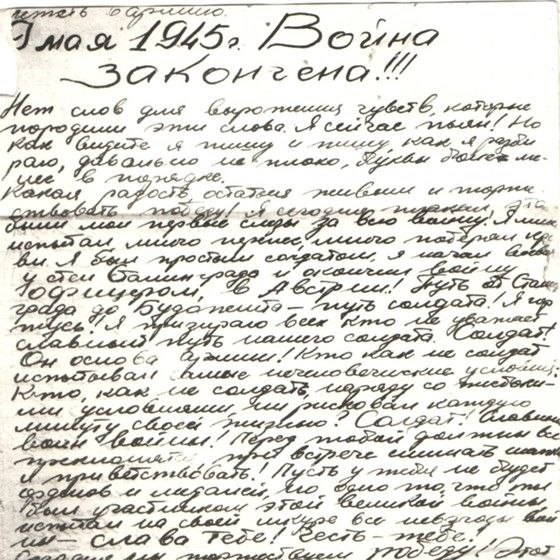 лежать в армию.
9 мая 1945г. Война
закончена!!!
Нет слов для выражения чувств, которые
породили эти слова. Я сейчас пьян! Но
как видите я пишу и пишу, как я разби
раю, довольно не плохо, буквы более ме-
нее в порядке.
Какая радость остаться живым и торже
ствовать победу! Я сегодня плакал это
были мои первые слёзы за всю войну. Я мно
испытал, много перенес, много потерял кро
ви. Я был простым солдатом, я начал воева
у стен Сталинграда и окончил войну
офицером, в Австрии! Путь от Стали
града до Будапешта – путь солдата! Я гор
жусь! Я презираю всех кто не уважает
славный путь нашего солдата. Солдат!
Он основа армии! Кто как не солдат
испытывал самые нечеловеческие условия;
Кто, как не солдат, наряду со жестоки-
ми условиями, не рисковал каждую
минуту своей жизнью? Солдат! Славный
воин войны! Перед тобой должны все
преклоняться при встрече снимать
и приветствовать! Пусть у тебя не будет
орденов и медалей, но одно то, что ты
был участником этой великой войны
испытал на своей шкуре все невзгоды вой
ны – слава тебе! Честь – тебе!
Сегодня мы торжествуем победу! Это